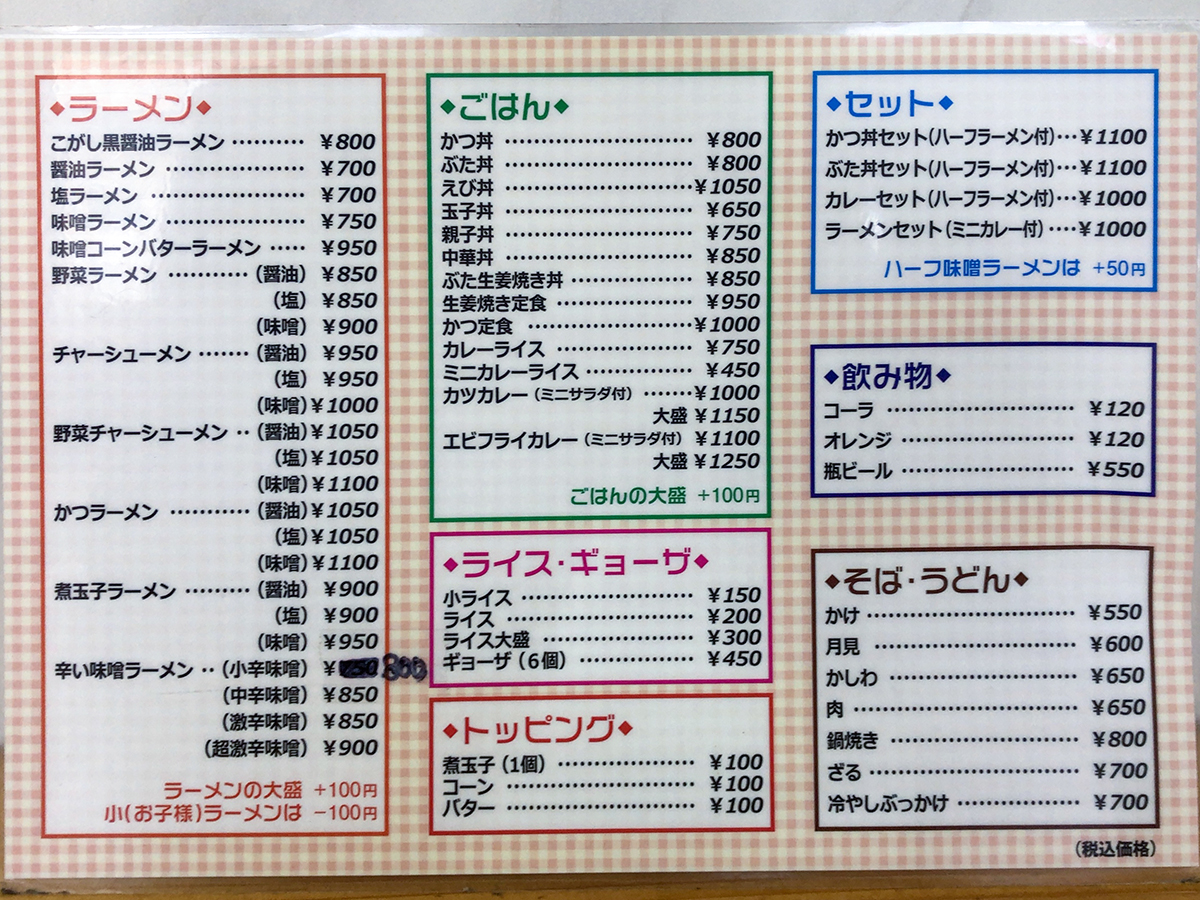 ◆ラーメン◆
こがし黒醤油ラーメン ………… ¥800
醤油ラーメン ………………… ¥700
塩ラーメン …………………… ¥700
味噌ラーメン ………………… ¥750
味噌コーンバターラーメン ‥‥ ¥950
野菜ラーメン ………… (醤油) ¥850
(塩) ¥850
(味噌) ¥900
チャーシューメン ……… (醤油) ¥950
(塩) ¥950
(味噌) ¥1000
野菜チャーシューメン ‥ (醤油) ¥1050
(塩) ¥1050
(味噌) ¥1100
かつラーメン ………… (醤油) ¥1050
(塩) ¥1050
(味噌) ¥1100
煮玉子ラーメン ……… (醤油) ¥900
(塩) ¥900
(味噌) ¥950
辛い味噌ラーメン ‥ (小辛味噌) ¥ 800
(中辛味噌) ¥850
(激辛味噌) ¥850
(超激辛味噌) ¥900
ラーメンの大盛 +100円
小(お子様)ラーメンは −100円
◆ごはん◆
かつ丼 …………………… ¥800
ぶた丼 …………………… ¥800
えび丼 …………………… ¥1050
玉子丼 …………………… ¥650
親子丼 …………………… ¥750
中華丼 …………………… ¥850
ぶた生姜焼き丼 ………… ¥850
生姜焼き定食 …………… ¥950
かつ定食 ………………… ¥1000
カレーライス …………… ¥750
ミニカレーライス ……… ¥450
カツカレー (ミニサラダ付) ……… ¥1000
大盛 ¥1150
エビフライカレー (ミニサラダ付) ¥1100
大盛 ¥1250
ごはんの大盛 +100円
◆ライス・ギョーザ◆
小ライス ………………… ¥150
ライス …………………… ¥200
ライス大盛 ……………… ¥300
ギョーザ (6個) ………… ¥450
◆トッピング◆
煮玉子 (1個) …………… ¥100
コーン …………………… ¥100
バター …………………… ¥100
◆セット◆
かつ丼セット(ハーフラーメン付)… ¥1100
ぶた丼セット(ハーフラーメン付)… ¥1100
カレーセット(ハーフラーメン付)… ¥1000
ラーメンセット(ミニカレー付)‥‥ ¥1000
ハーフ味噌ラーメンは +50円
◆飲み物◆
コーラ …………………… ¥120
オレンジ ………………… ¥120
瓶ビール ………………… ¥550
◆そば・うどん◆
かけ ……………………… ¥550
月見 ……………………… ¥600
かしわ …………………… ¥650
肉 ………………………… ¥650
鍋焼き …………………… ¥800
ざる ……………………… ¥700
冷やしぶっかけ ………… ¥700
(税込価格)